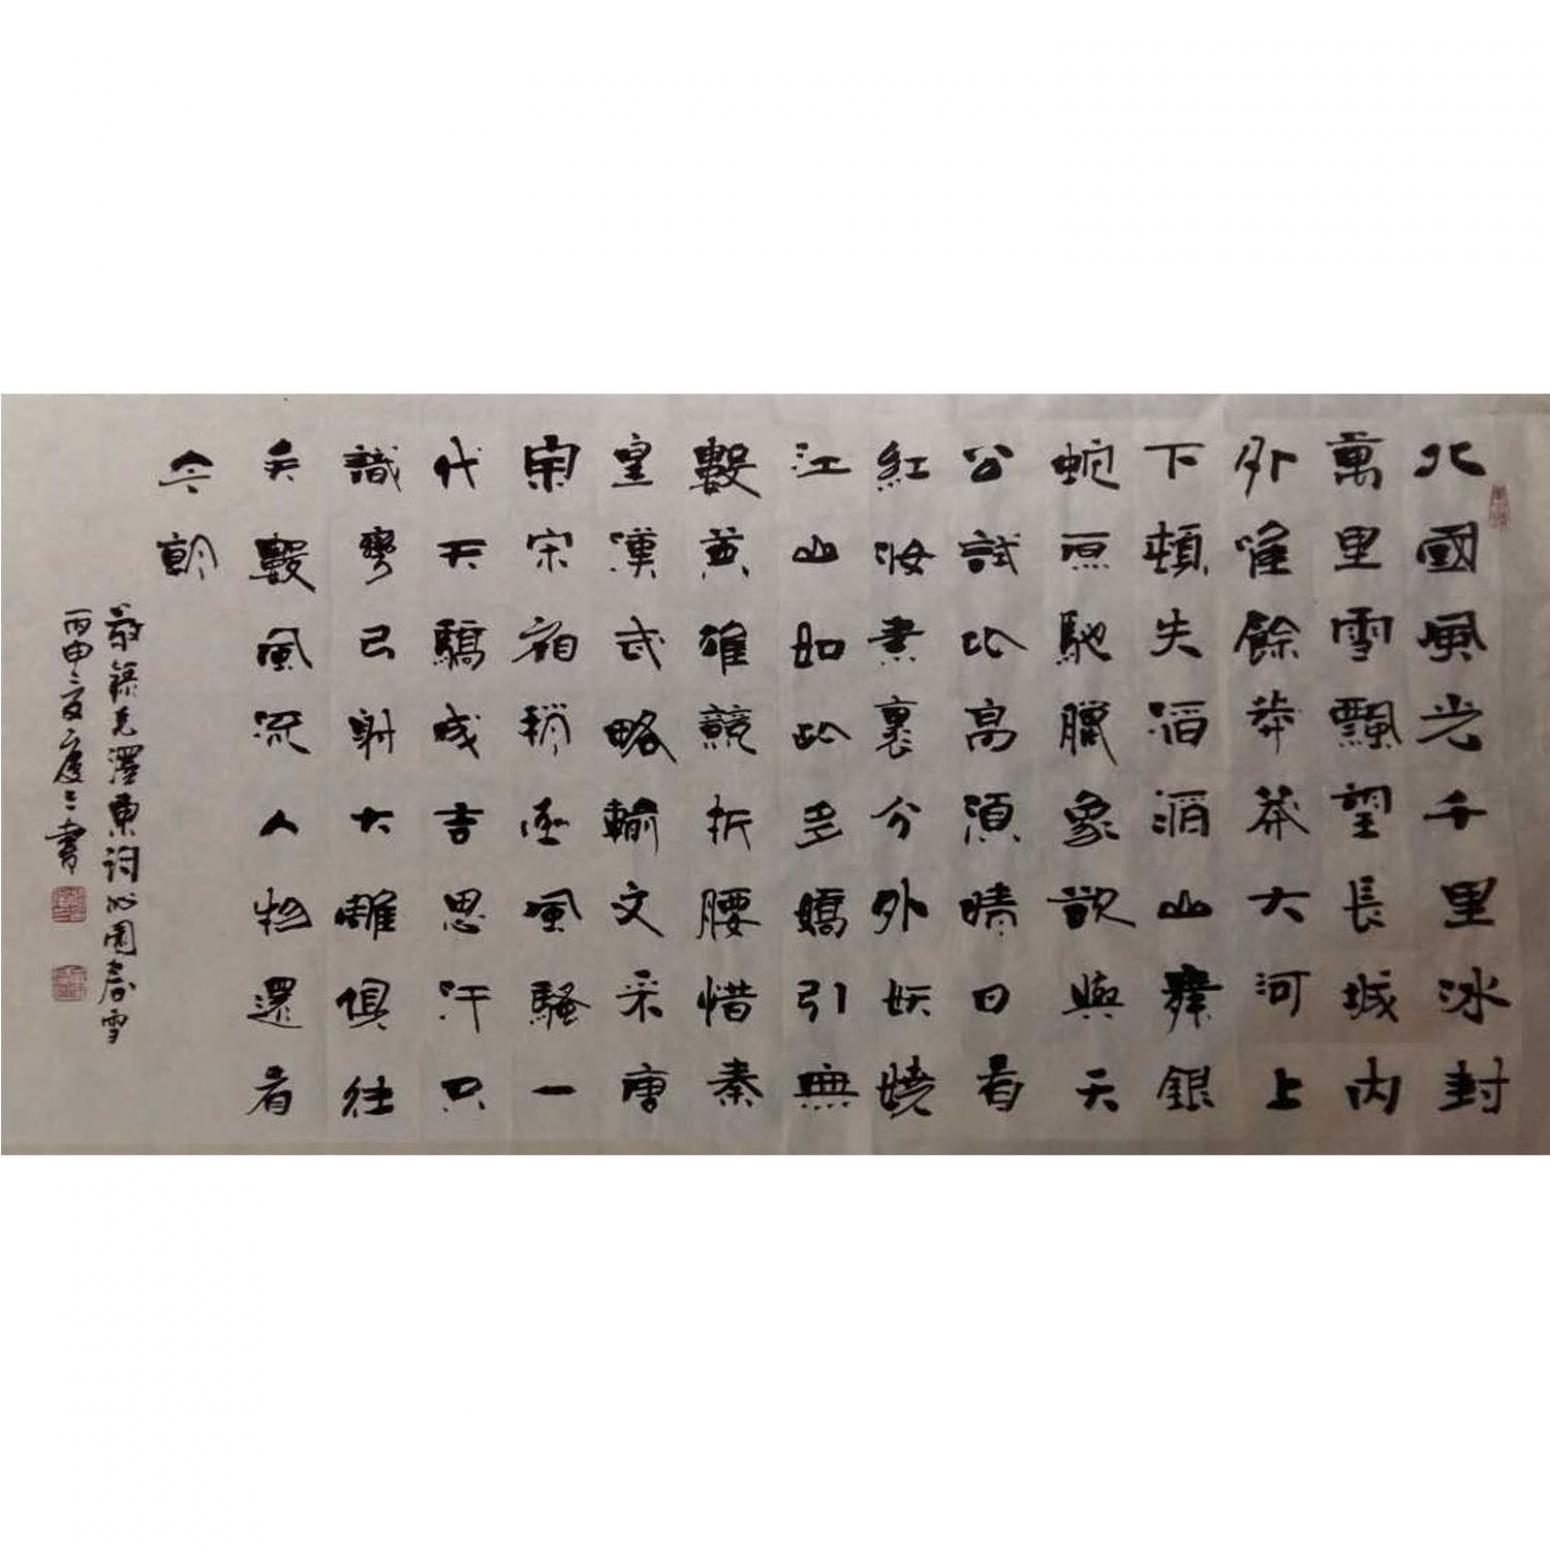 北國風光千里冰封
萬里雪飄望長城內
外唯餘莽莽大河上
下頓失滔滔山舞銀
蛇原馳臘象欲與天
公試比高須晴日看
紅妝素裹分外妖嬈
江山如此多嬌引無
數英雄競折腰惜秦
皇漢武略輸文采唐
宗宋祖稍遜風騷一
代天驕成吉思汗只
識彎弓射大雕俱往
矣數風流人物還看
今朝
敬錄毛澤東詞沁園春雪
丙申之夏書